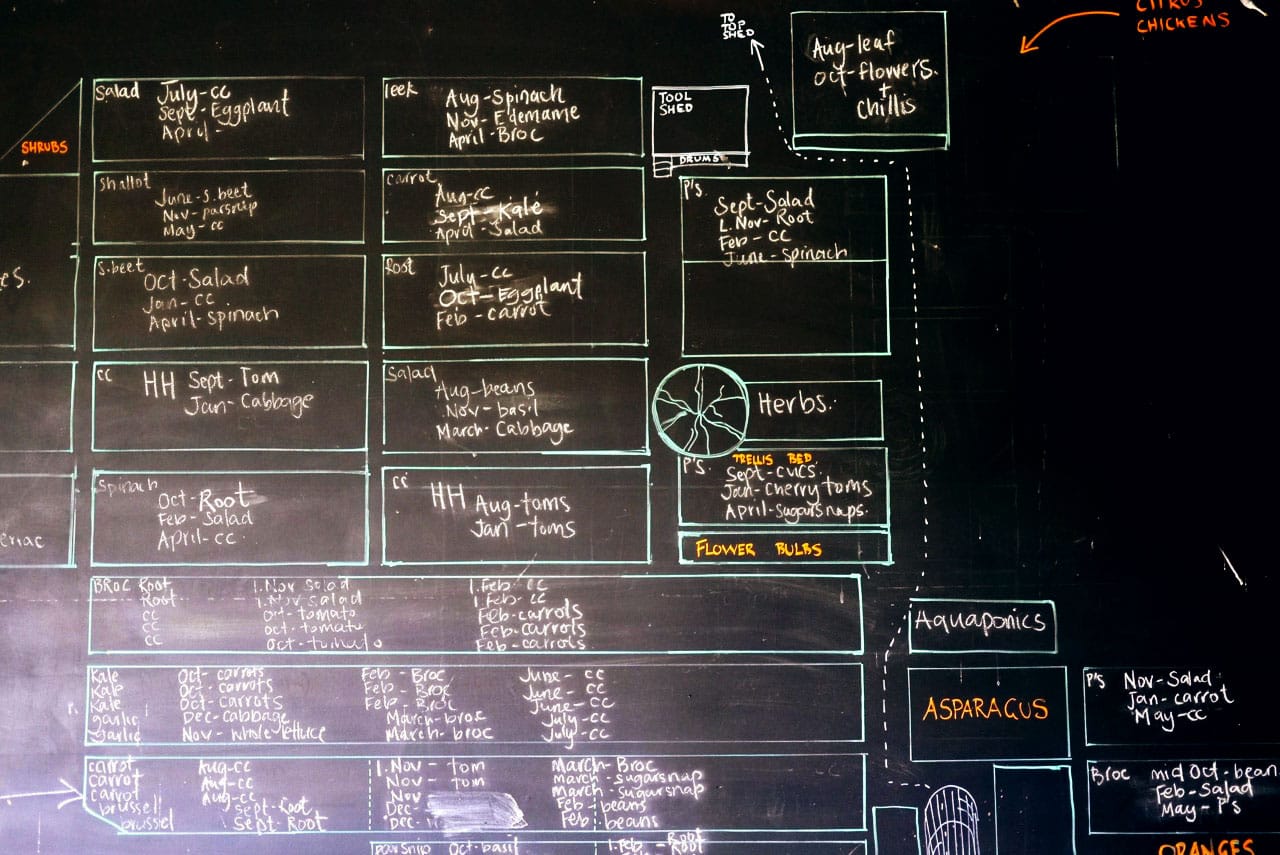 CITRUS
CHICKENS
TO
TOP
SHED
Aug-leaf
Oct-flowers.
+
chillis
SHRUBS
salad
July-cc
Sept-Eggplant
April-
leek
Aug-Spinach
Nov-Edemame
April-Broc
TOOL
SHED
DRUMS
shallot
June-s.beet
Nov-parsnip
May-cc
carrot
Aug-cc
Sept-Kale
April-Salad
P's
Sept-Salad
L.Nov-Root
Feb-cc
June-Spinach
s.beet
Oct-Salad
Jan-cc
April-Spinach
Root
July-cc
Oct-Eggplant
Feb-carrot
cc
HH Sept-Tom
Jan-Cabbage
Salad
Aug-beans
Nov-basil
March-Cabbage
Herbs.
P's. TRELLIS BED
Sept-cucs.
Jan-cherry toms
April-sugarsnaps.
FLOWER BULBS
Spinach
Oct-Root
Feb-Salad
April-cc
cc
HH Aug-toms
Jan-toms
BROC Root l.Nov Salad l.Feb-cc
Root l.Nov salad l Feb-cc
cc Oct-tomato Feb-carrots
cc Oct-tomato Feb-carrots
cc Oct-tomato Feb-carrots
Kale Oct-carrots Feb-Broc June-cc
Kale Oct-carrots Feb-Broc June-cc
Kale Oct-Carrots Feb-Broc June-cc
garlic Dec-cabbage March-broc July-cc
garlic Nov-whole lettuce March-broc July-cc
carrot Aug-cc l.Nov-tom March-Broc
carrot Aug-cc Nov-tom march-sugarsnap
carrot Aug-cc Nov March-sugarsnap
brussell Sept-Root Dec- Feb-beans
brussel Sept-Root Dec- Feb-beans
parsnip Oct-basil l.Feb-Root
Root
Aquaponics
ASPARAGUS
P's Nov-Salad
Jan-carrot
May-cc
Broc mid Oct-bean
Feb-Salad
May-P's
ORANGES